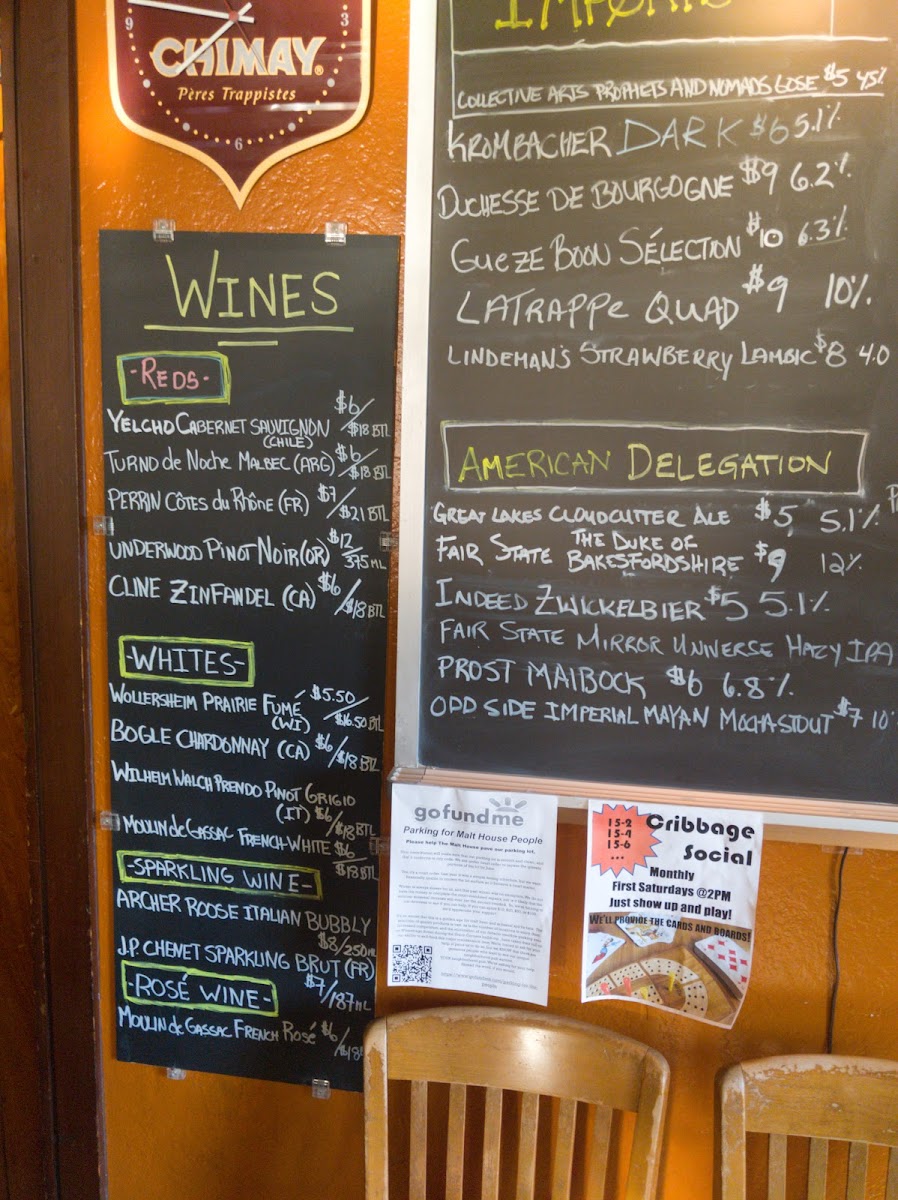 9
3
CHIMAY®
Pères Trappistes
6
WINES
-REDS-
YELCHO CABERNET SAUVIGNON $6/
(CHILE) $18 BTL
TURNO de NOCHE MALBEC (ARG) $6/
$18 BTL
PERRIN CÔTES du RHÔNE (FR) $7/
$21 BTL
UNDERWOOD PINOT NOIR (OR) $12/
375 ML
CLINE ZINFANDEL (CA) $6/
$18 BTL
-WHITES-
WOLLERSHEIM PRAIRIE FUMÉ $5.50/
(WI) $16.50 BTL
BOGLE CHARDONNAY (CA) $6/$18 BTL
WILHELM WALCH PRENDO PINOT GRIGIO
(IT) $6/$18 BTL
MOULIN de GASSAC FRENCH WHITE $6/
$18 BTL
-SPARKLING WINE-
ARCHER ROOSE ITALIAN BUBBLY
$8/250 ML
J.P. CHENET SPARKLING BRUT (FR)
$7/187 ML
-ROSÉ WINE-
MOULIN de GASSAC FRENCH ROSÉ $6/
$18
IMPORTS
COLLECTIVE ARTS PROPHETS AND NOMADS GOSE $5 4.5%
KROMBACHER DARK $6 5.1%
DUCHESSE DE BOURGOGNE $9 6.2%
GUEZE BOON SÉLECTION $10 6.3%
LATRAPPE QUAD $9 10%
LINDEMAN'S STRAWBERRY LAMBIC $8 4.0
AMERICAN DELEGATION
GREAT LAKES CLOUDCUTTER ALE $5 5.1%
FAIR STATE THE DUKE OF
BAKESFORDSHIRE $9 12%
INDEED ZWICKELBIER $5 5.1%
FAIR STATE MIRROR UNIVERSE HAZY IPA
PROST MAIBOCK $6 6.8%
ODD SIDE IMPERIAL MAYAN MOCHA STOUT $7 10
gofundme
Parking for Malt House People
Please help The Malt House pave our parking lot.
15-2
15-4
15-6
...
Cribbage
Social
Monthly
First Saturdays @2PM
Just show up and play!
WE'LL PROVIDE THE CARDS AND BOARDS!